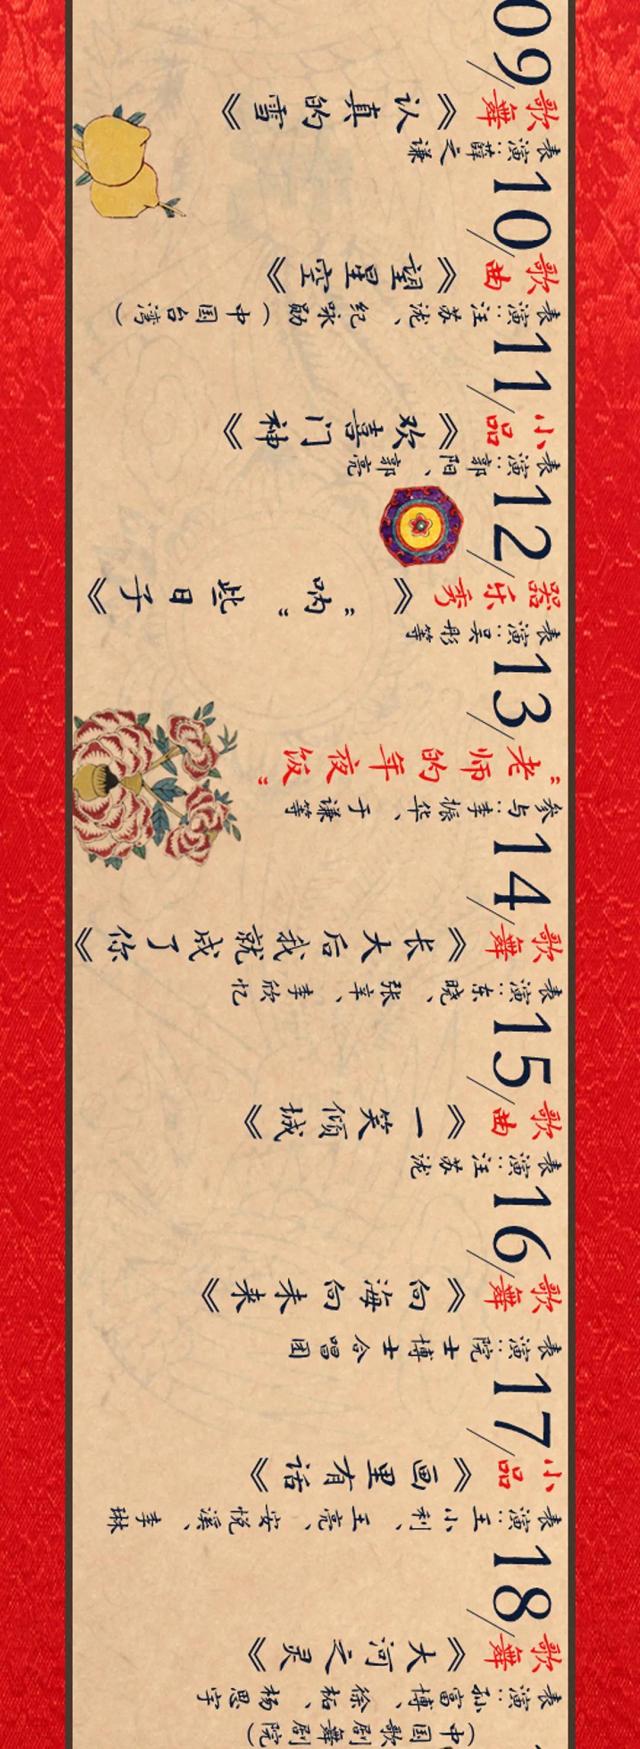 09/
歌舞《认真的雪》
表演：薛之谦
10/
歌曲《望星空》
表演：汪苏泷、纪咏勋（中国台湾）
11/
小品《欢喜门神》
表演：郭阳、郭亮
12/
器乐秀《“呐”些日子》
表演：吴彤等
13/
“老师的年夜饭”
参与：李振华、于谦等
14/
歌舞《长大后我就成了你》
表演：东晓、张辛、李欣忆
15/
歌曲《一笑倾城》
表演：汪苏泷
16/
歌舞《向海向未来》
表演：院士博士合唱团
17/
小品《画里有话》
表演：王小利、王亮、安悦溪、李琳
18/
歌舞《大河之灵》
表演：孙富博、徐祐、杨思宇
（中国歌剧舞剧院）